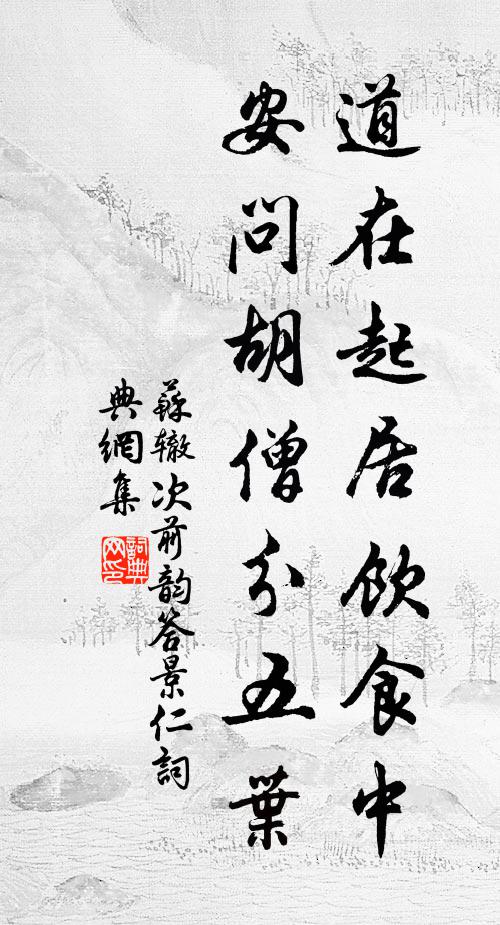 道在起居飲食中
安問胡僧分五葉
蘇辙次前韵答景仁詞
典網集
詞典
网印